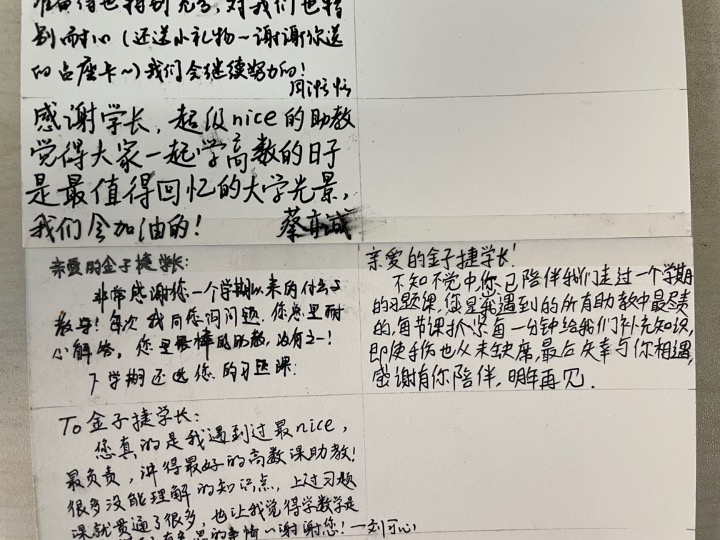 准备得也特别充分，对我们也特
别耐心（还送小礼物~谢谢你送
的占座卡~）我们会继续努力的！
感谢学长，超级nice的助教
觉得大家一起学高数的日子
是最值得回忆的大学光景，
我们会加油的！ 蔡亦诚
亲爱的金子捷学长：
非常感谢您一个学期以来的付出与
教导！每次我向您询问问题，您总是耐
心解答。您是最棒的助教，没有之一！
下学期还选您的习题课！
亲爱的金子捷学长！
不知不觉中，你已陪伴我们走过一个学期
的习题课，您是我遇到的所有助教中最尽责
的，每节课抓紧每一分钟给我们补充知识，
即使手伤也从未缺席，最后庆幸与你相遇，
感谢有你陪伴，明年再见.
To 金子捷学长：
您真的是我遇到过最nice，
最负责，讲得最好的高数课助教！
很多没能理解的知识点，上过习题
课就贯通了很多，也让我觉得学数学是
有意思的事情~谢谢您！—刘可心